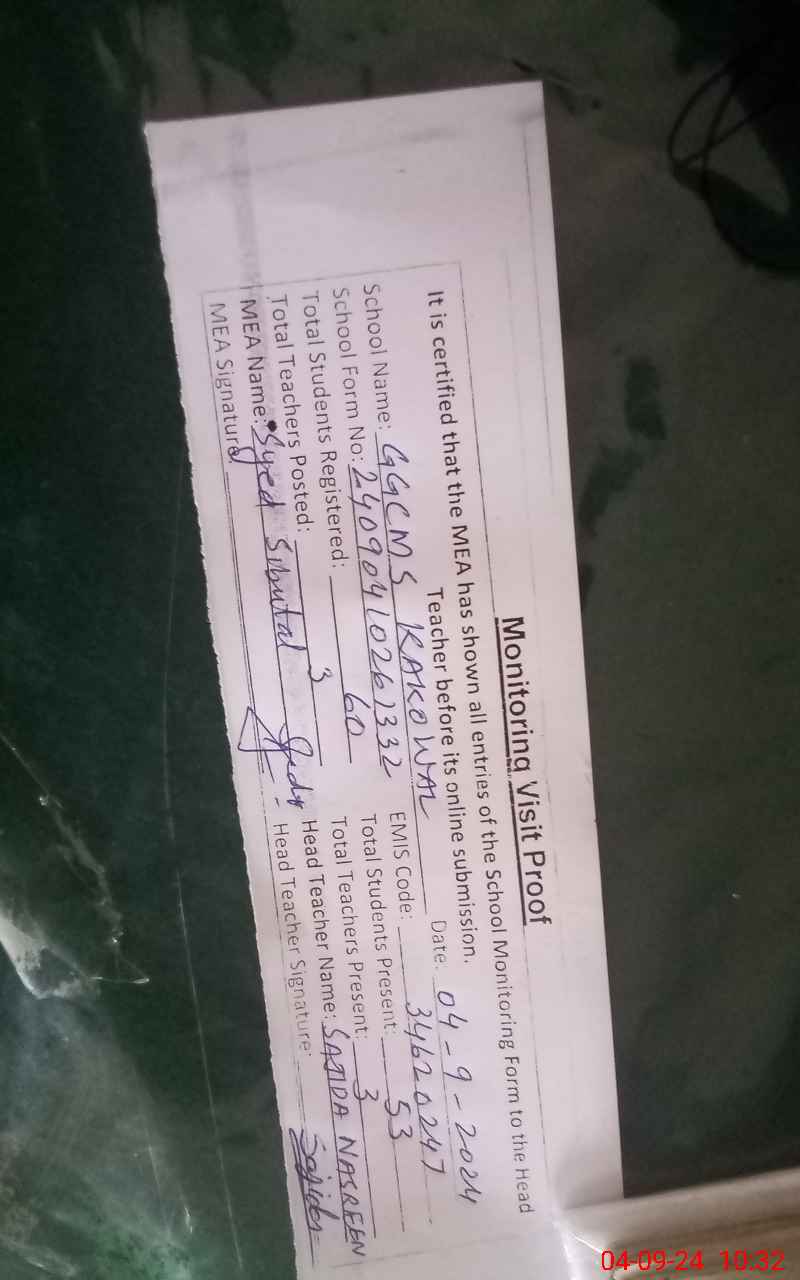 Monitoring Visit Proof
It is certified that the MEA has shown all entries of the School Monitoring Form to the Head
Teacher before its online submission.
Date: 04-9-2024
School Name: GGCMS KAKOWAL EMIS Code: 34620247
School Form No: 24090410261332 Total Students Present: 53
Total Students Registered: 60 Total Teachers Present: 3
Total Teachers Posted: 3 Head Teacher Name: SAJIDA NASREEN
MEA Name: Syed Head Teacher Signature: Sajida
MEA Signature
04-09-24 10:32